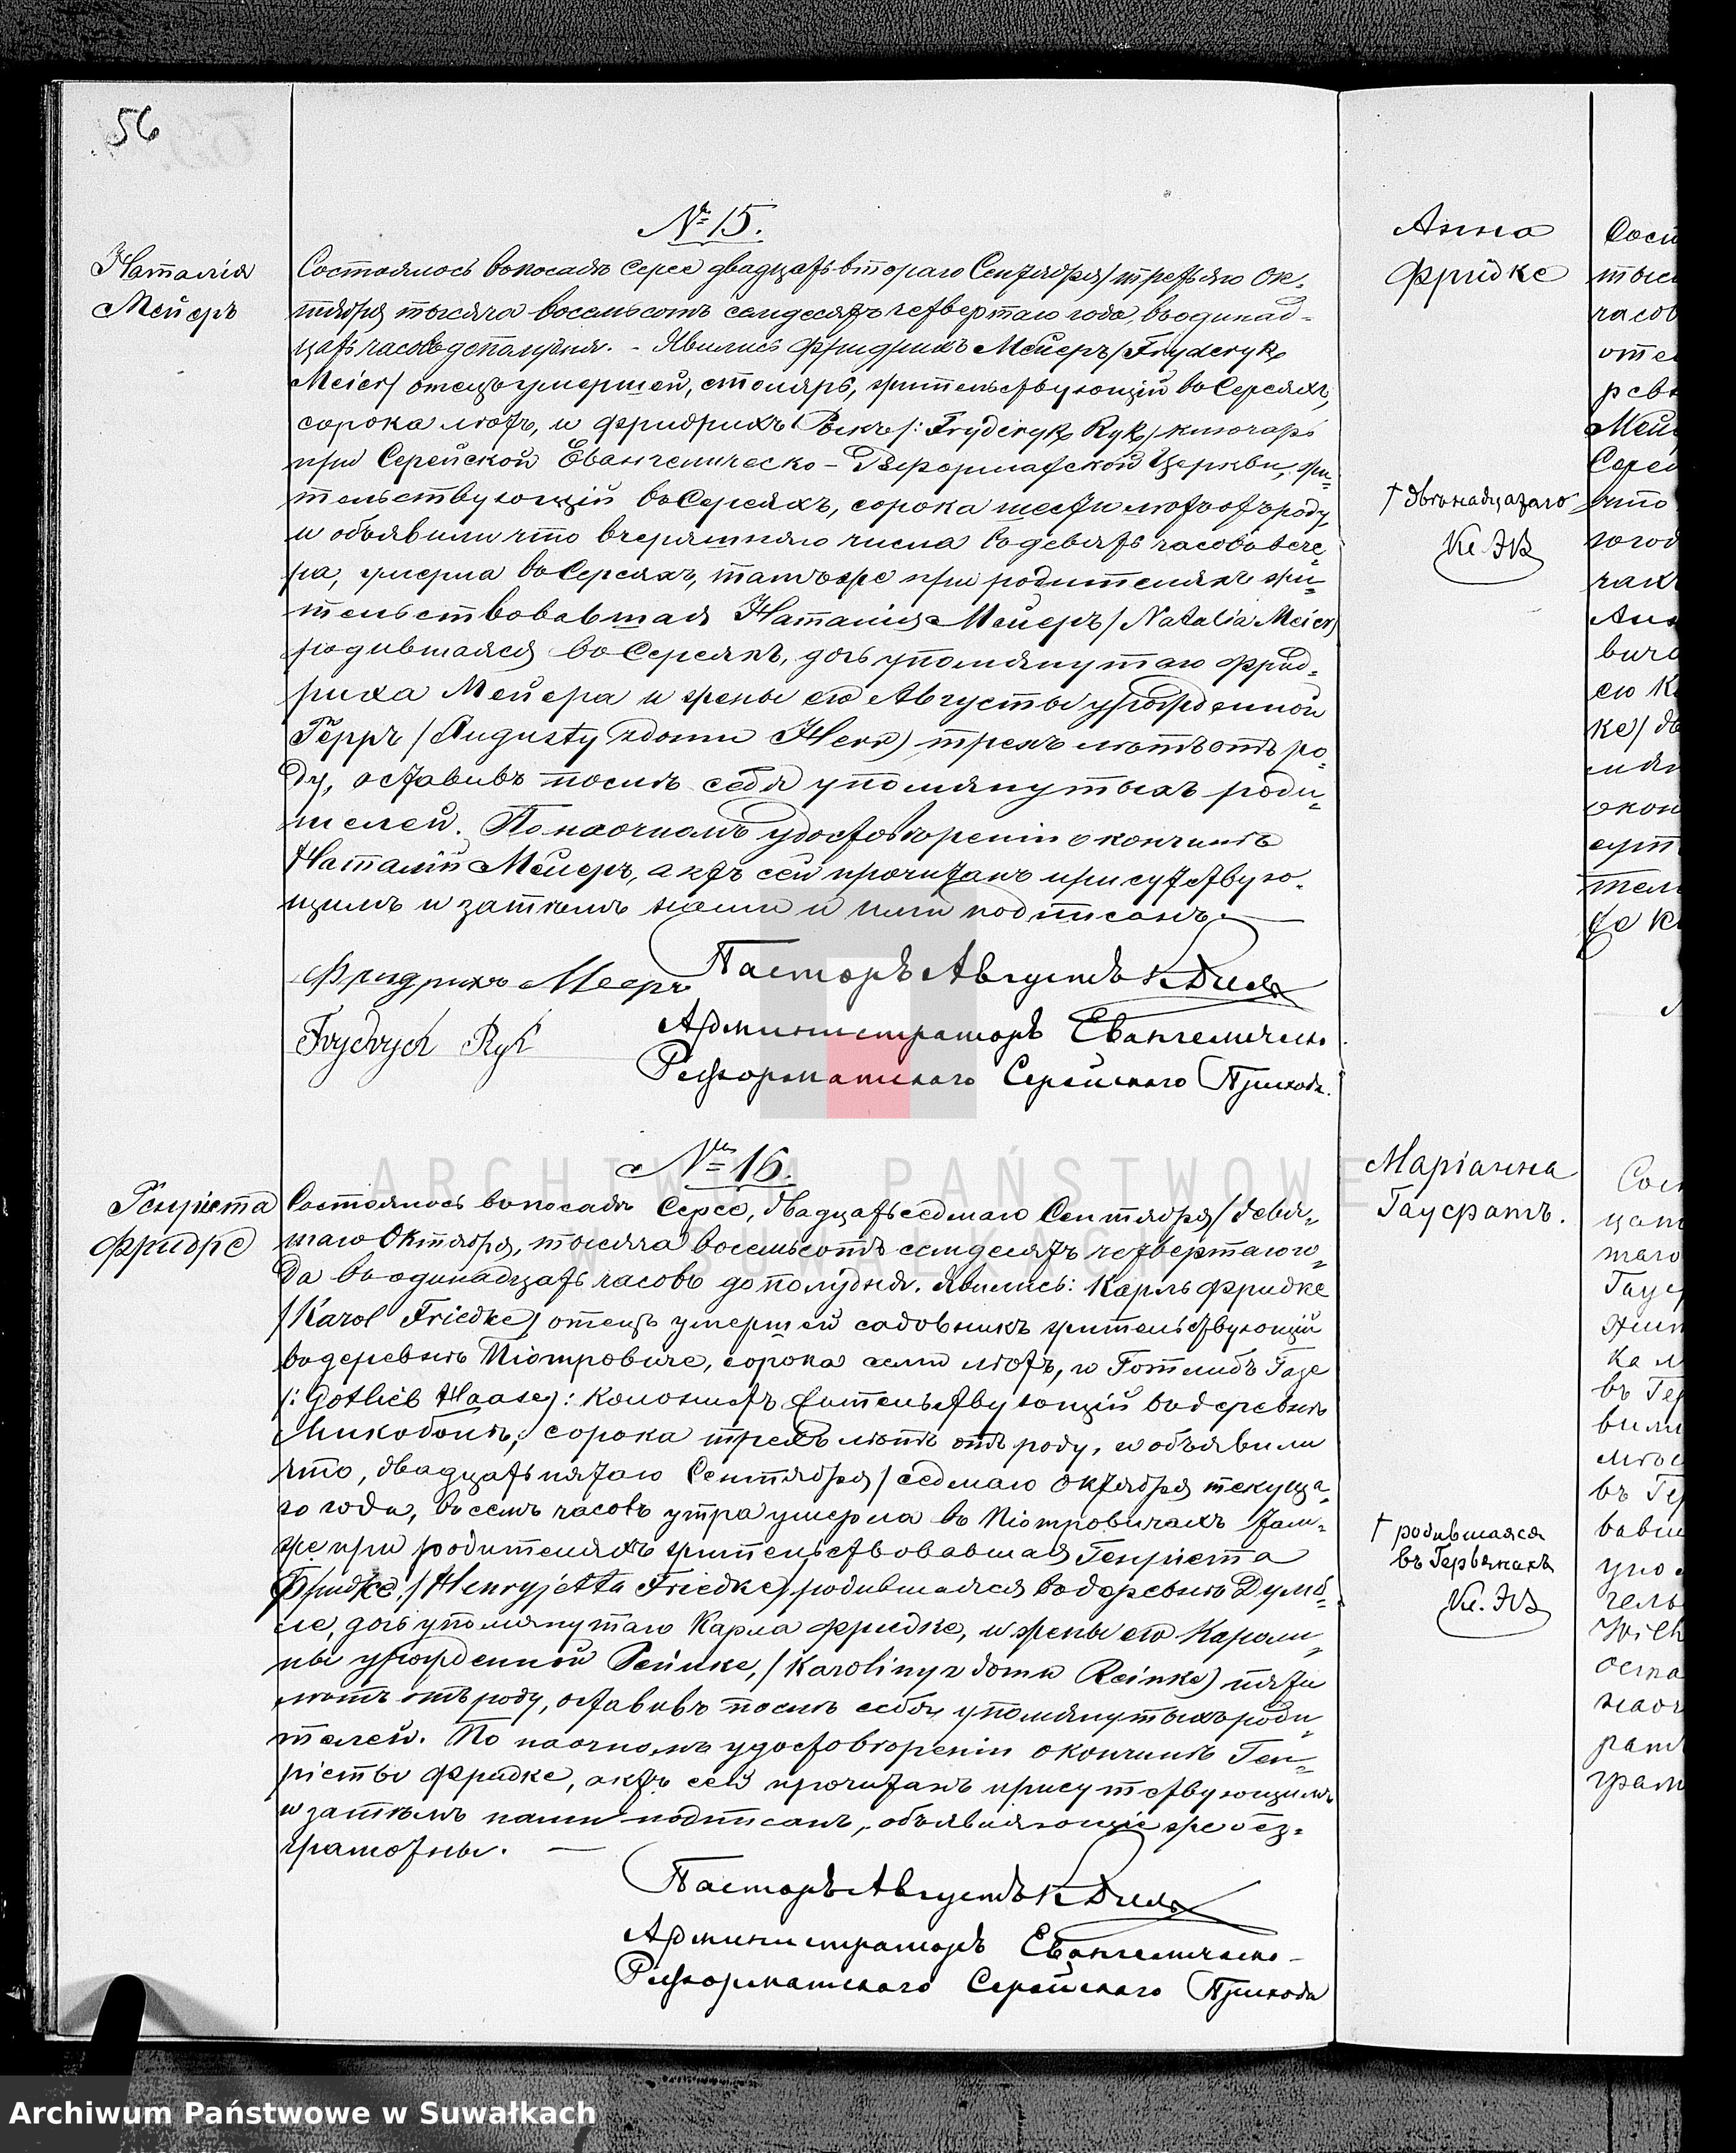 56
№ 15.
Наталія
Мейеръ
Состоялось въ посадѣ Серее двадцать втораго Сентября/третьяго Ок-
тября тысяча восемьсотъ семдесятъ четвертаго года, въ одинад-
цать часовъ до полудня. - Явились Фридрихъ Мейеръ /Fryderyk
Meier/ отецъ умершей, столяръ, жительствующій въ Сереяхъ,
сорока лѣтъ, и Фридрихъ Рыкъ /: Fryderyk Ryk/ ключарь
при Серейской Евангелическо-Реформатской Церкви, жи-
тельствующій въ Сереяхъ, сорока шести лѣтъ отъ роду,
и объявили что вчерашняго числа въ девять часовъ вече-
ра, умерла въ Сереяхъ, тамъ же при родителяхъ жи-
тельствовавшая Наталія Мейеръ /Natalia Meier/
родившаяся въ Сереяхъ, дочь упомянутаго Фрид-
риха Мейера и жены его Августы урожденной
Герръ /Augusty z domu Herr) трехъ лѣтъ отъ ро-
ду, оставивъ послѣ себя упомянутыхъ роди-
телей. По наочномъ удостовѣреніи о кончинѣ
Наталіи Мейеръ, актъ сей прочитанъ присутствую-
щимъ и затѣмъ нами и ними подписанъ.
Фридрихъ Мееръ
Frydrych Ryk
Пасторъ Августъ К. Диль
Администраторъ Евангелическо-
Реформатскаго Серейскаго Прихода.
№ 16.
Генріета
Фридке
Состоялось въ посадѣ Серее, двадцать седмаго Сентября/девя-
таго Октября, тысяча восемьсотъ семдесятъ четвертаго го-
да въ одинадцать часовъ до полудня. Явились: Карль Фридке
/Karol Friedke/ отецъ умершей садовникъ жительствующій
въ деревнѣ Піотровиче, сорока семи лѣтъ, и Готлибъ Газе
/: Gotlieb Haase/: колонистъ жительствующій въ деревнѣ
Миколоитѣ, сорока трехъ лѣтъ отъ роду, и объявили
что, двадцать пятаго Сентября/седмаго Октября текуща-
го года, въ семь часовъ утра умерла въ Піотровичахъ там-
же при родителяхъ жительствовавшая Генріета
Фридке, /Henryjetta Friedke/ родившаяся въ деревнѣ Думб-
ле, дочь упомянутаго Карла Фридке, и жены его Кароли-
ны урожденной Рейнке, /Karoliny z domu Reinke) пяти
лѣтъ отъ роду, оставивъ послѣ себя упомянутыхъ роди-
телей. По наочномъ удостовѣреніи о кончинѣ Ген-
ріеты Фридке, актъ сей прочитанъ присутствующимъ
и затѣмъ нами подписанъ, объявляющіе же без-
грамотны.
Пасторъ Августъ К. Диль
Администраторъ Евангелическо-
Реформатскаго Серейскаго Прихода
Анна
Фридке
† двѣнадцатаго
Маріанна
Гаусратъ.
† родившаяся
въ Гервянахъ
ARCHIWUM PAŃSTWOWE
W SUWAŁKACH
Archiwum Państwowe w Suwałkach